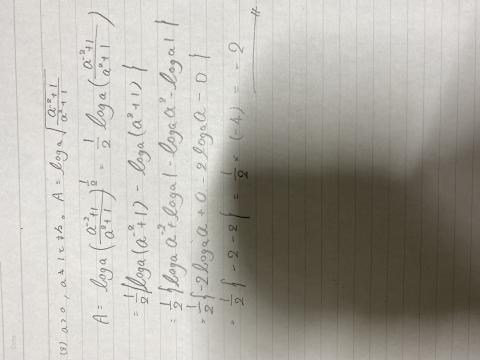 (8) a>0, a≠1とする。A = loga√((a⁻²+1)/(a²+1))
A = loga((a⁻²+1)/(a²+1))^(1/2) = 1/2 loga((a⁻²+1)/(a²+1))
= 1/2{loga(a⁻²+1) - loga(a²+1)}
= 1/2{loga a⁻² + loga1 - loga a² - loga1}
= 1/2{-2loga a + 0 - 2loga a - 0}
= 1/2{-2-2} = 1/2 × (-4) = -2